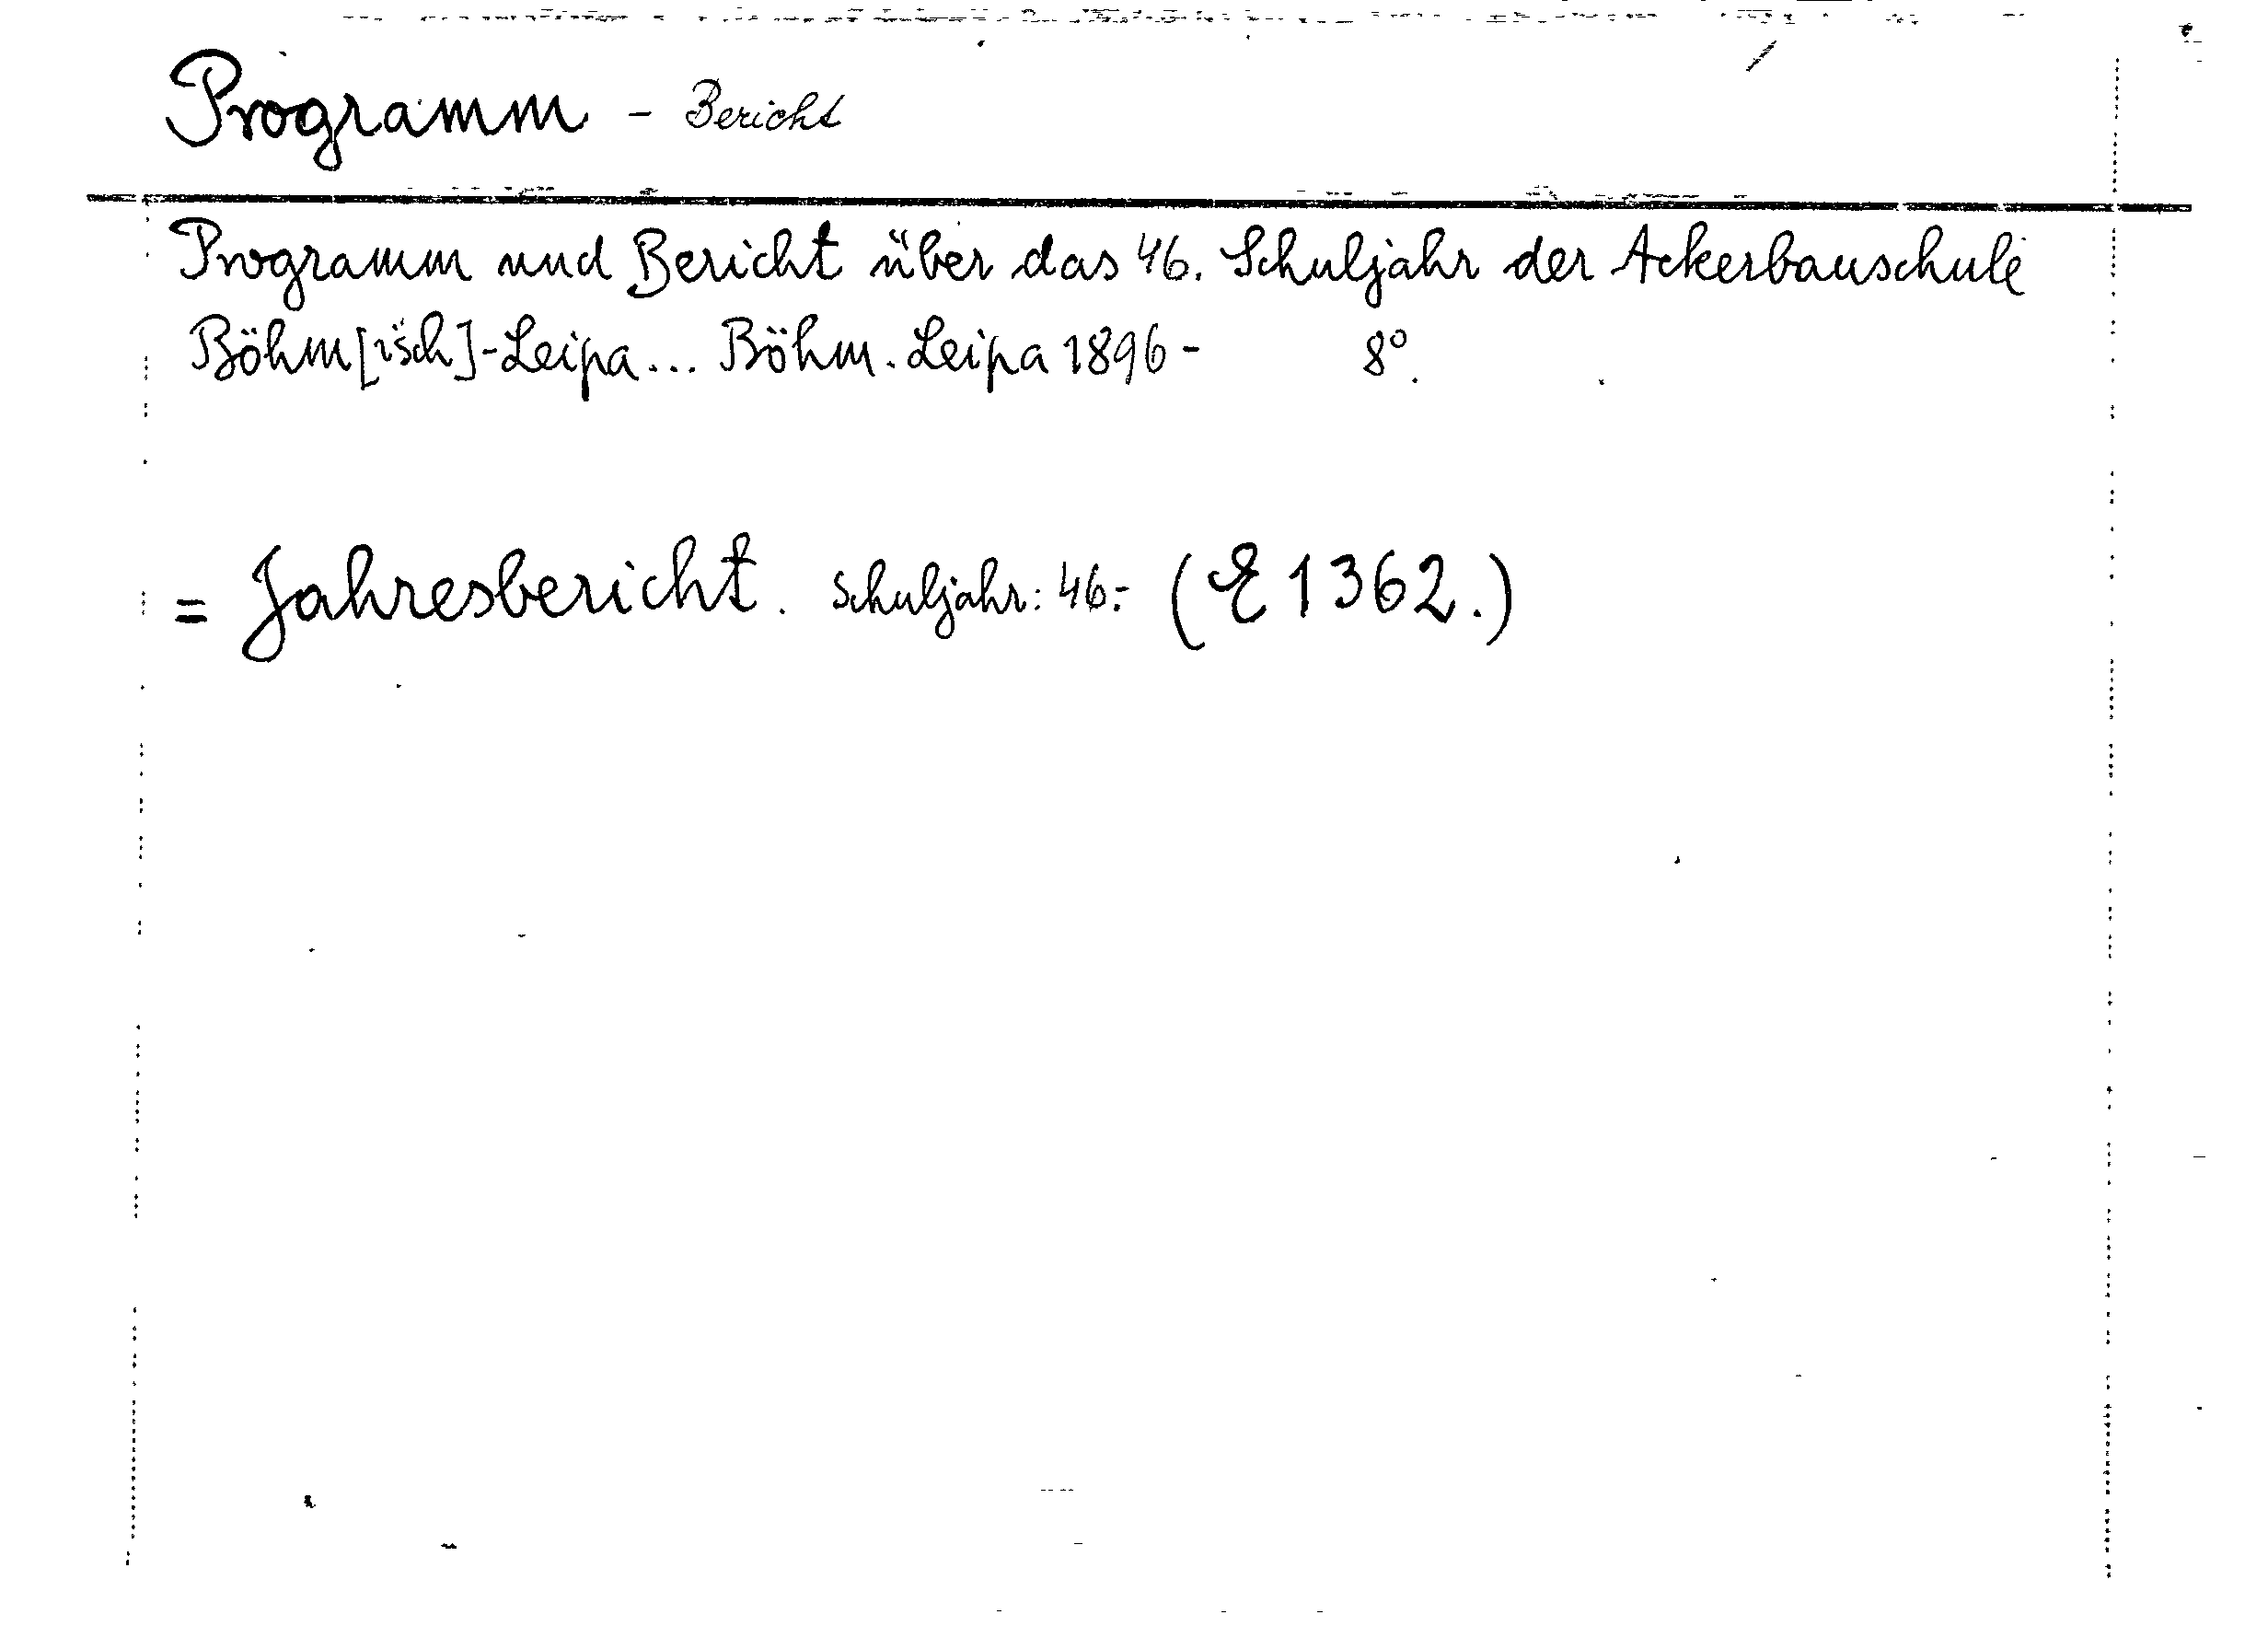 Programm - Bericht
Programm und Bericht über das 46. Schuljahr der Ackerbauschule
Böhm[isch]-Leipa... Böhm. Leipa 1896- 8°.
= Jahresbericht. Schuljahr: 46.- (E 1362.)